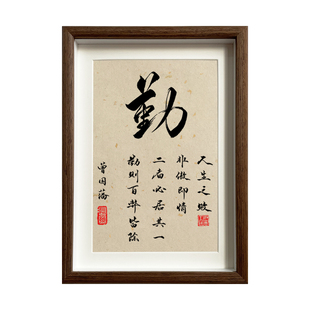 勤
人生之败
非傲即惰
二者必居其一
勤则百弊皆除
曾国藩